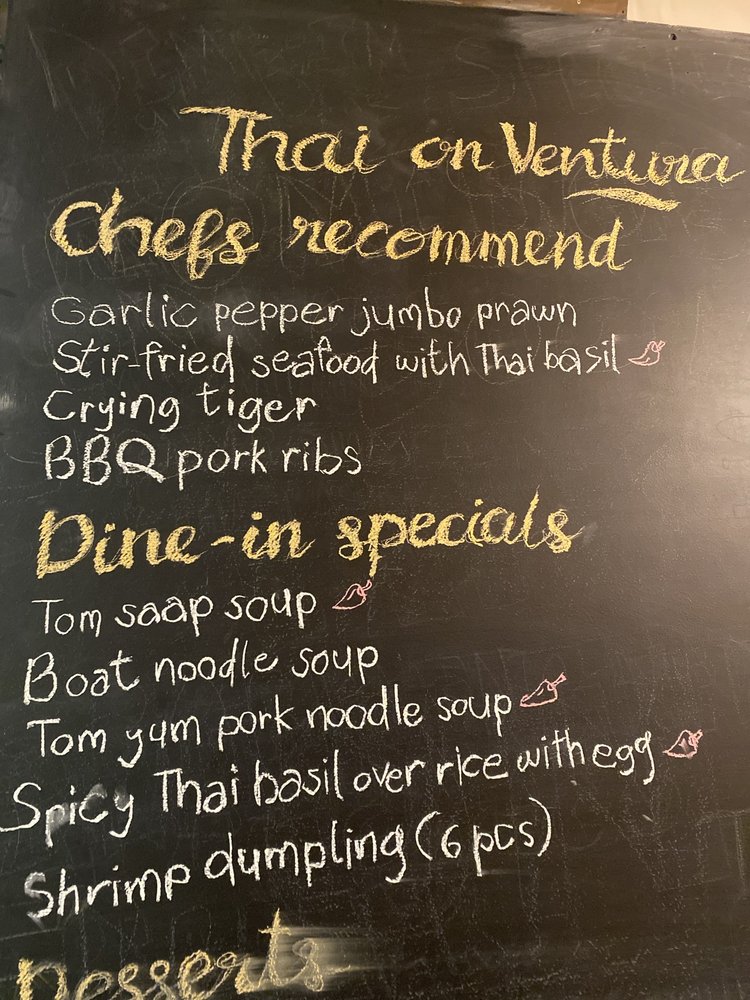 Thai on Ventura
Chefs recommend
Garlic pepper jumbo prawn
Stir-fried seafood with Thai basil
Crying tiger
BBQ pork ribs
Dine-in specials
Tom saap soup
Boat noodle soup
Tom yum pork noodle soup
Spicy Thai basil over rice with egg
Shrimp dumpling (6 pcs)
Desserts